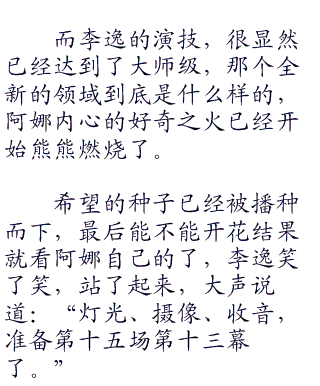 而李逸的演技，很显然
已经达到了大师级，那个全
新的领域到底是什么样的，
阿娜内心的好奇之火已经开
始熊熊燃烧了。
希望的种子已经被播种
而下，最后能不能开花结果
就看阿娜自己的了，李逸笑
了笑，站了起来，大声说
道：“灯光、摄像、收音，
准备第十五场第十三幕
了。”